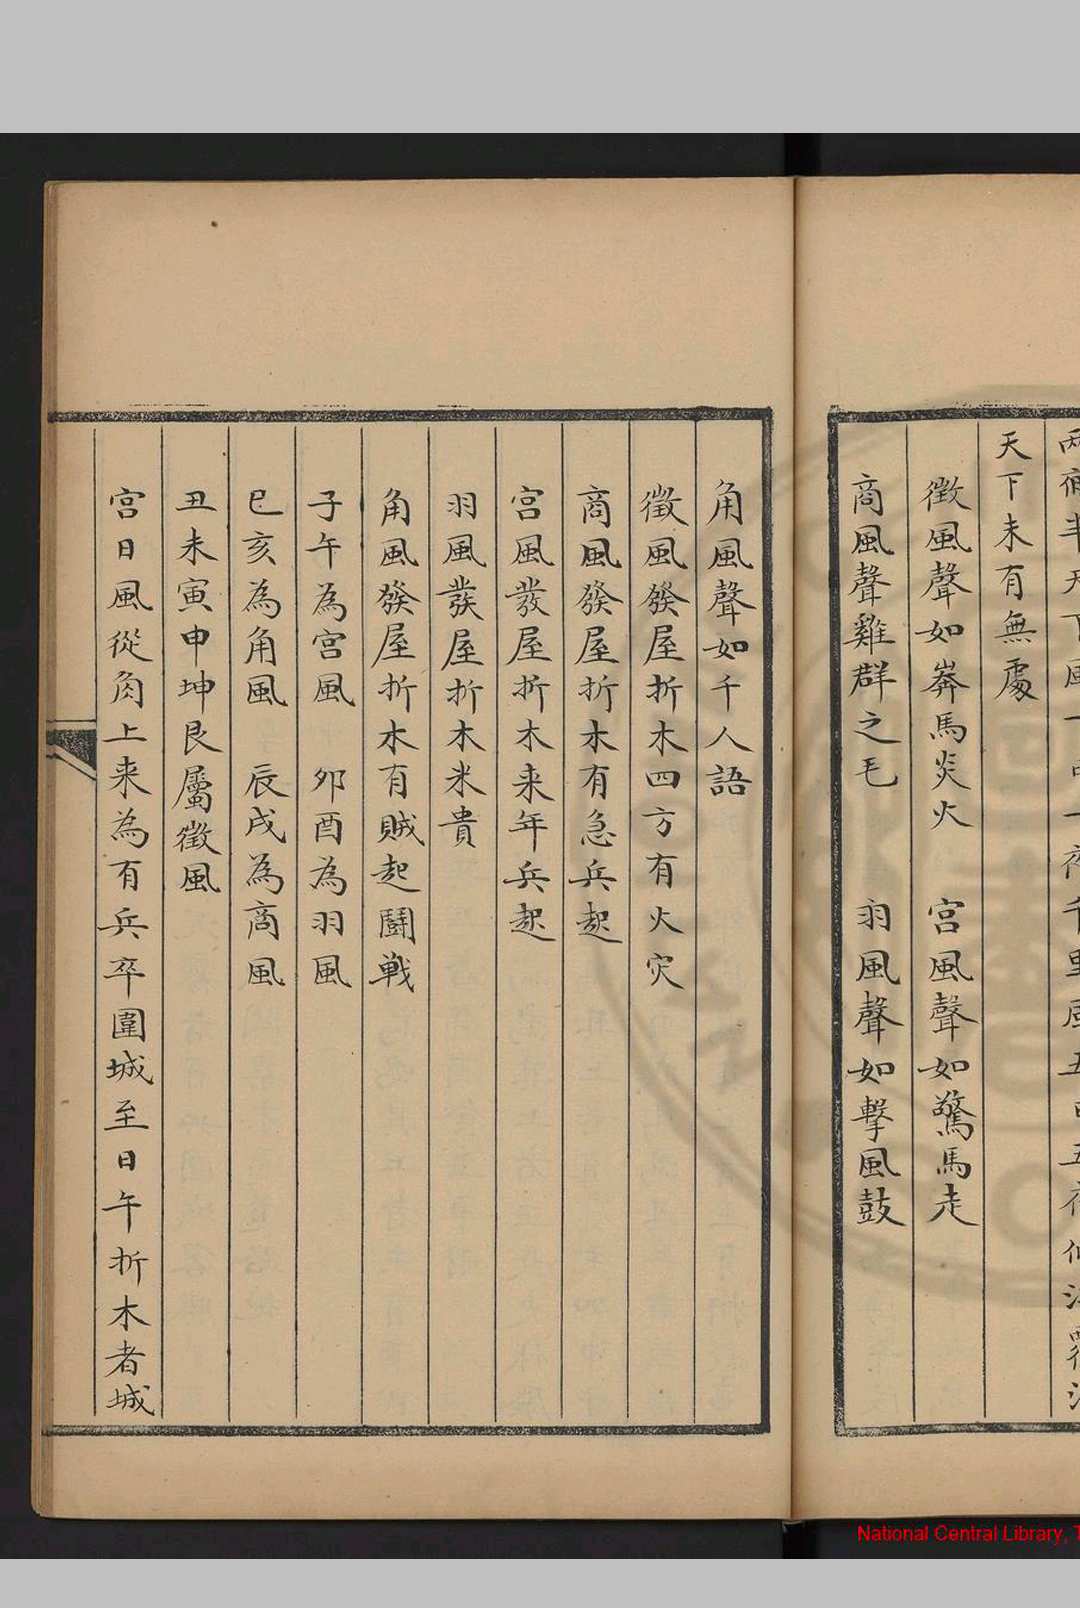 天下未有無處
徵風聲如奔馬炎火　宮風聲如驚馬走
商風聲雞群之毛　羽風聲如擊風鼓
角風聲如千人語
徵風發屋折木四方有火灾
商風發屋折木有急兵起
宮風發屋折木来年兵起
羽風發屋折木米貴
角風發屋折木有賊起鬭戰
子午為宮風　卯酉為羽風
巳亥為角風　辰戌為商風
丑未寅申坤艮屬徵風
宮日風從角上来為有兵卒圍城至日午折木者城
National Central Library,